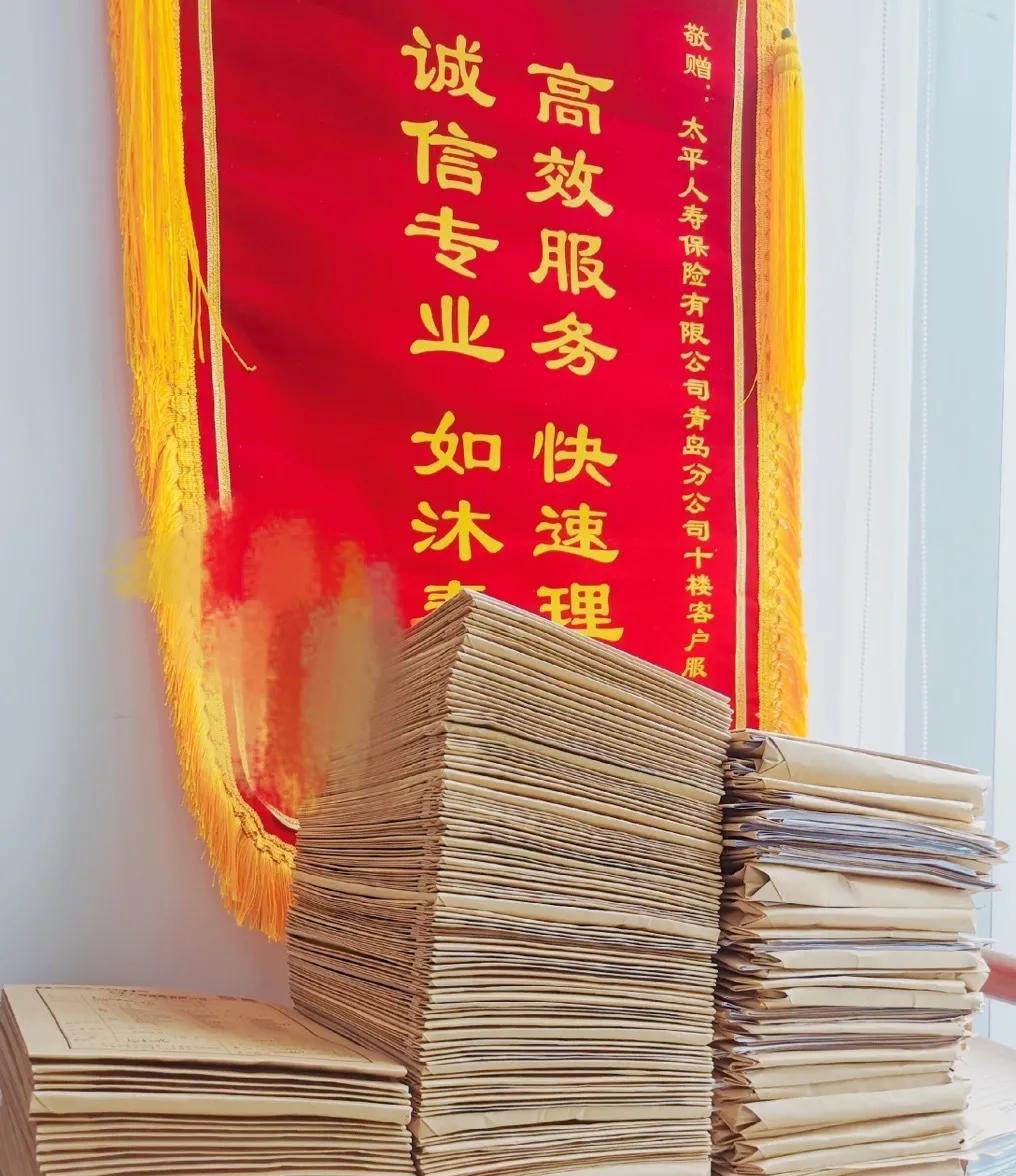 敬赠：太平人寿保险有限公司青岛分公司十楼客户服
高效服务 快速理
诚信专业 如沐春